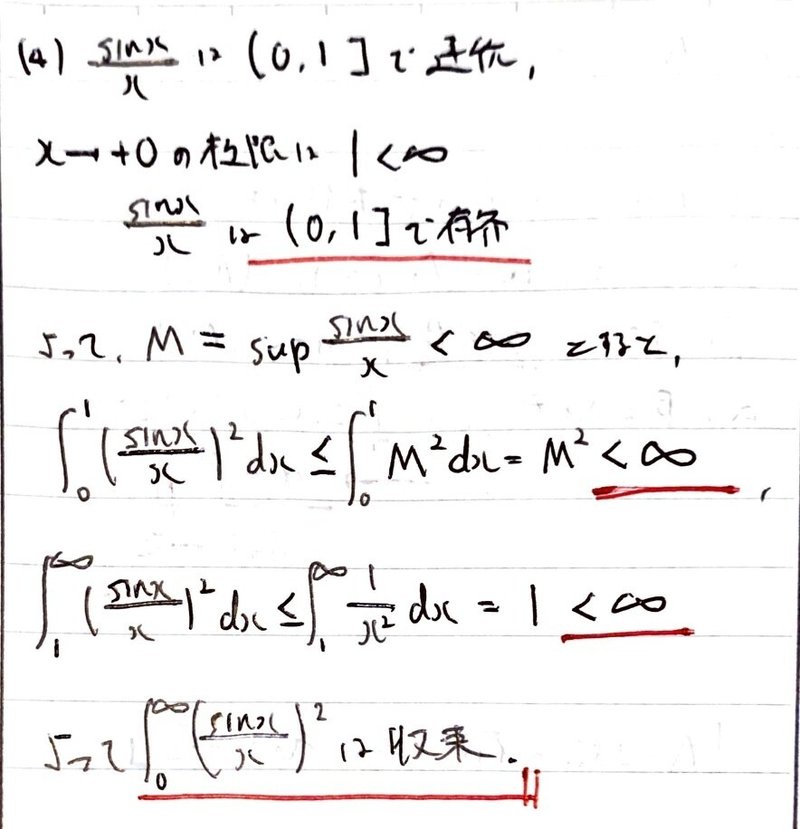 (4) sinx/x は (0, 1] で連続,
x→+0 の極限は 1 < ∞
sinx/x は (0, 1] で有界
よって, M = sup sinx/x < ∞ とすると,
∫_0^1 (sinx/x)^2 dx ≤ ∫_0^1 M^2 dx = M^2 < ∞ ,
∫_1^∞ (sinx/x)^2 dx ≤ ∫_1^∞ 1/x^2 dx = 1 < ∞
よって ∫_0^∞ (sinx/x)^2 は収束.